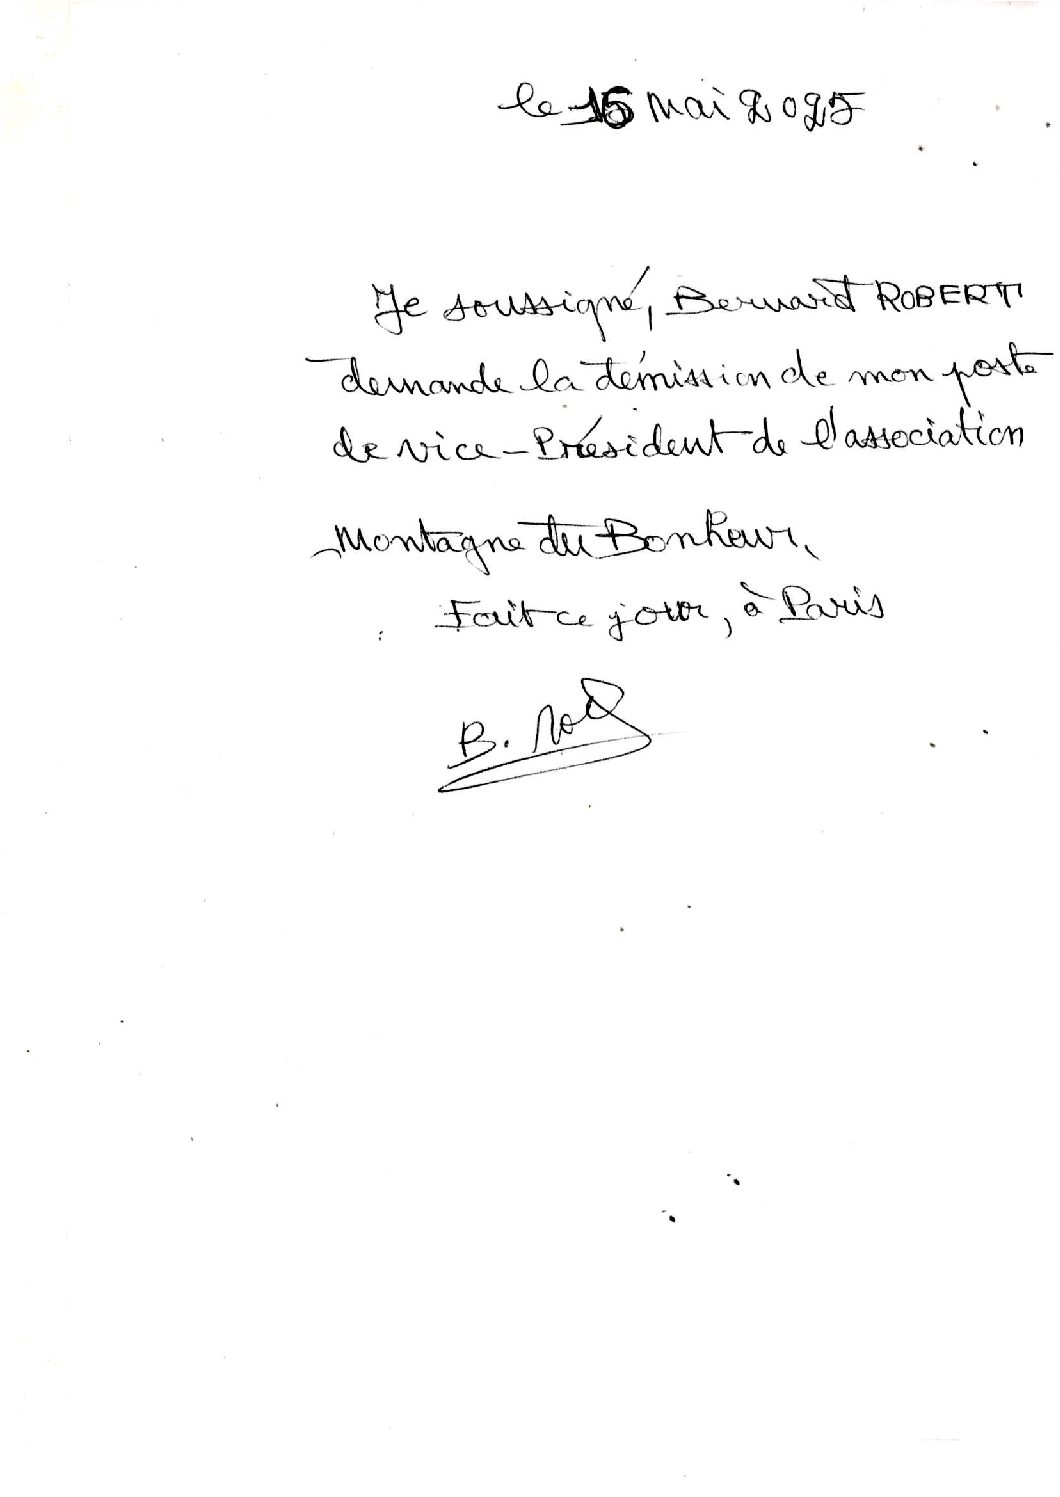 le 15 mai 2025
Je soussigné, Bernard ROBERT
demande la démission de mon poste
de vice-Président de l'association
Montagne du Bonheur.
Fait ce jour, à Paris
B.